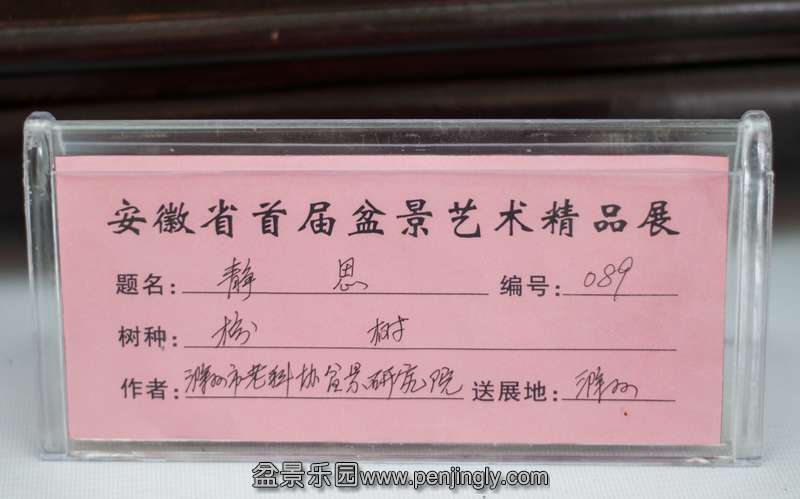 安徽省首届盆景艺术精品展
题名: 静 思 编号: 089
树种: 榆 树
作者: 滁州市老科协盆景研究院 送展地: 滁州
盆景乐园www.penjingly.com